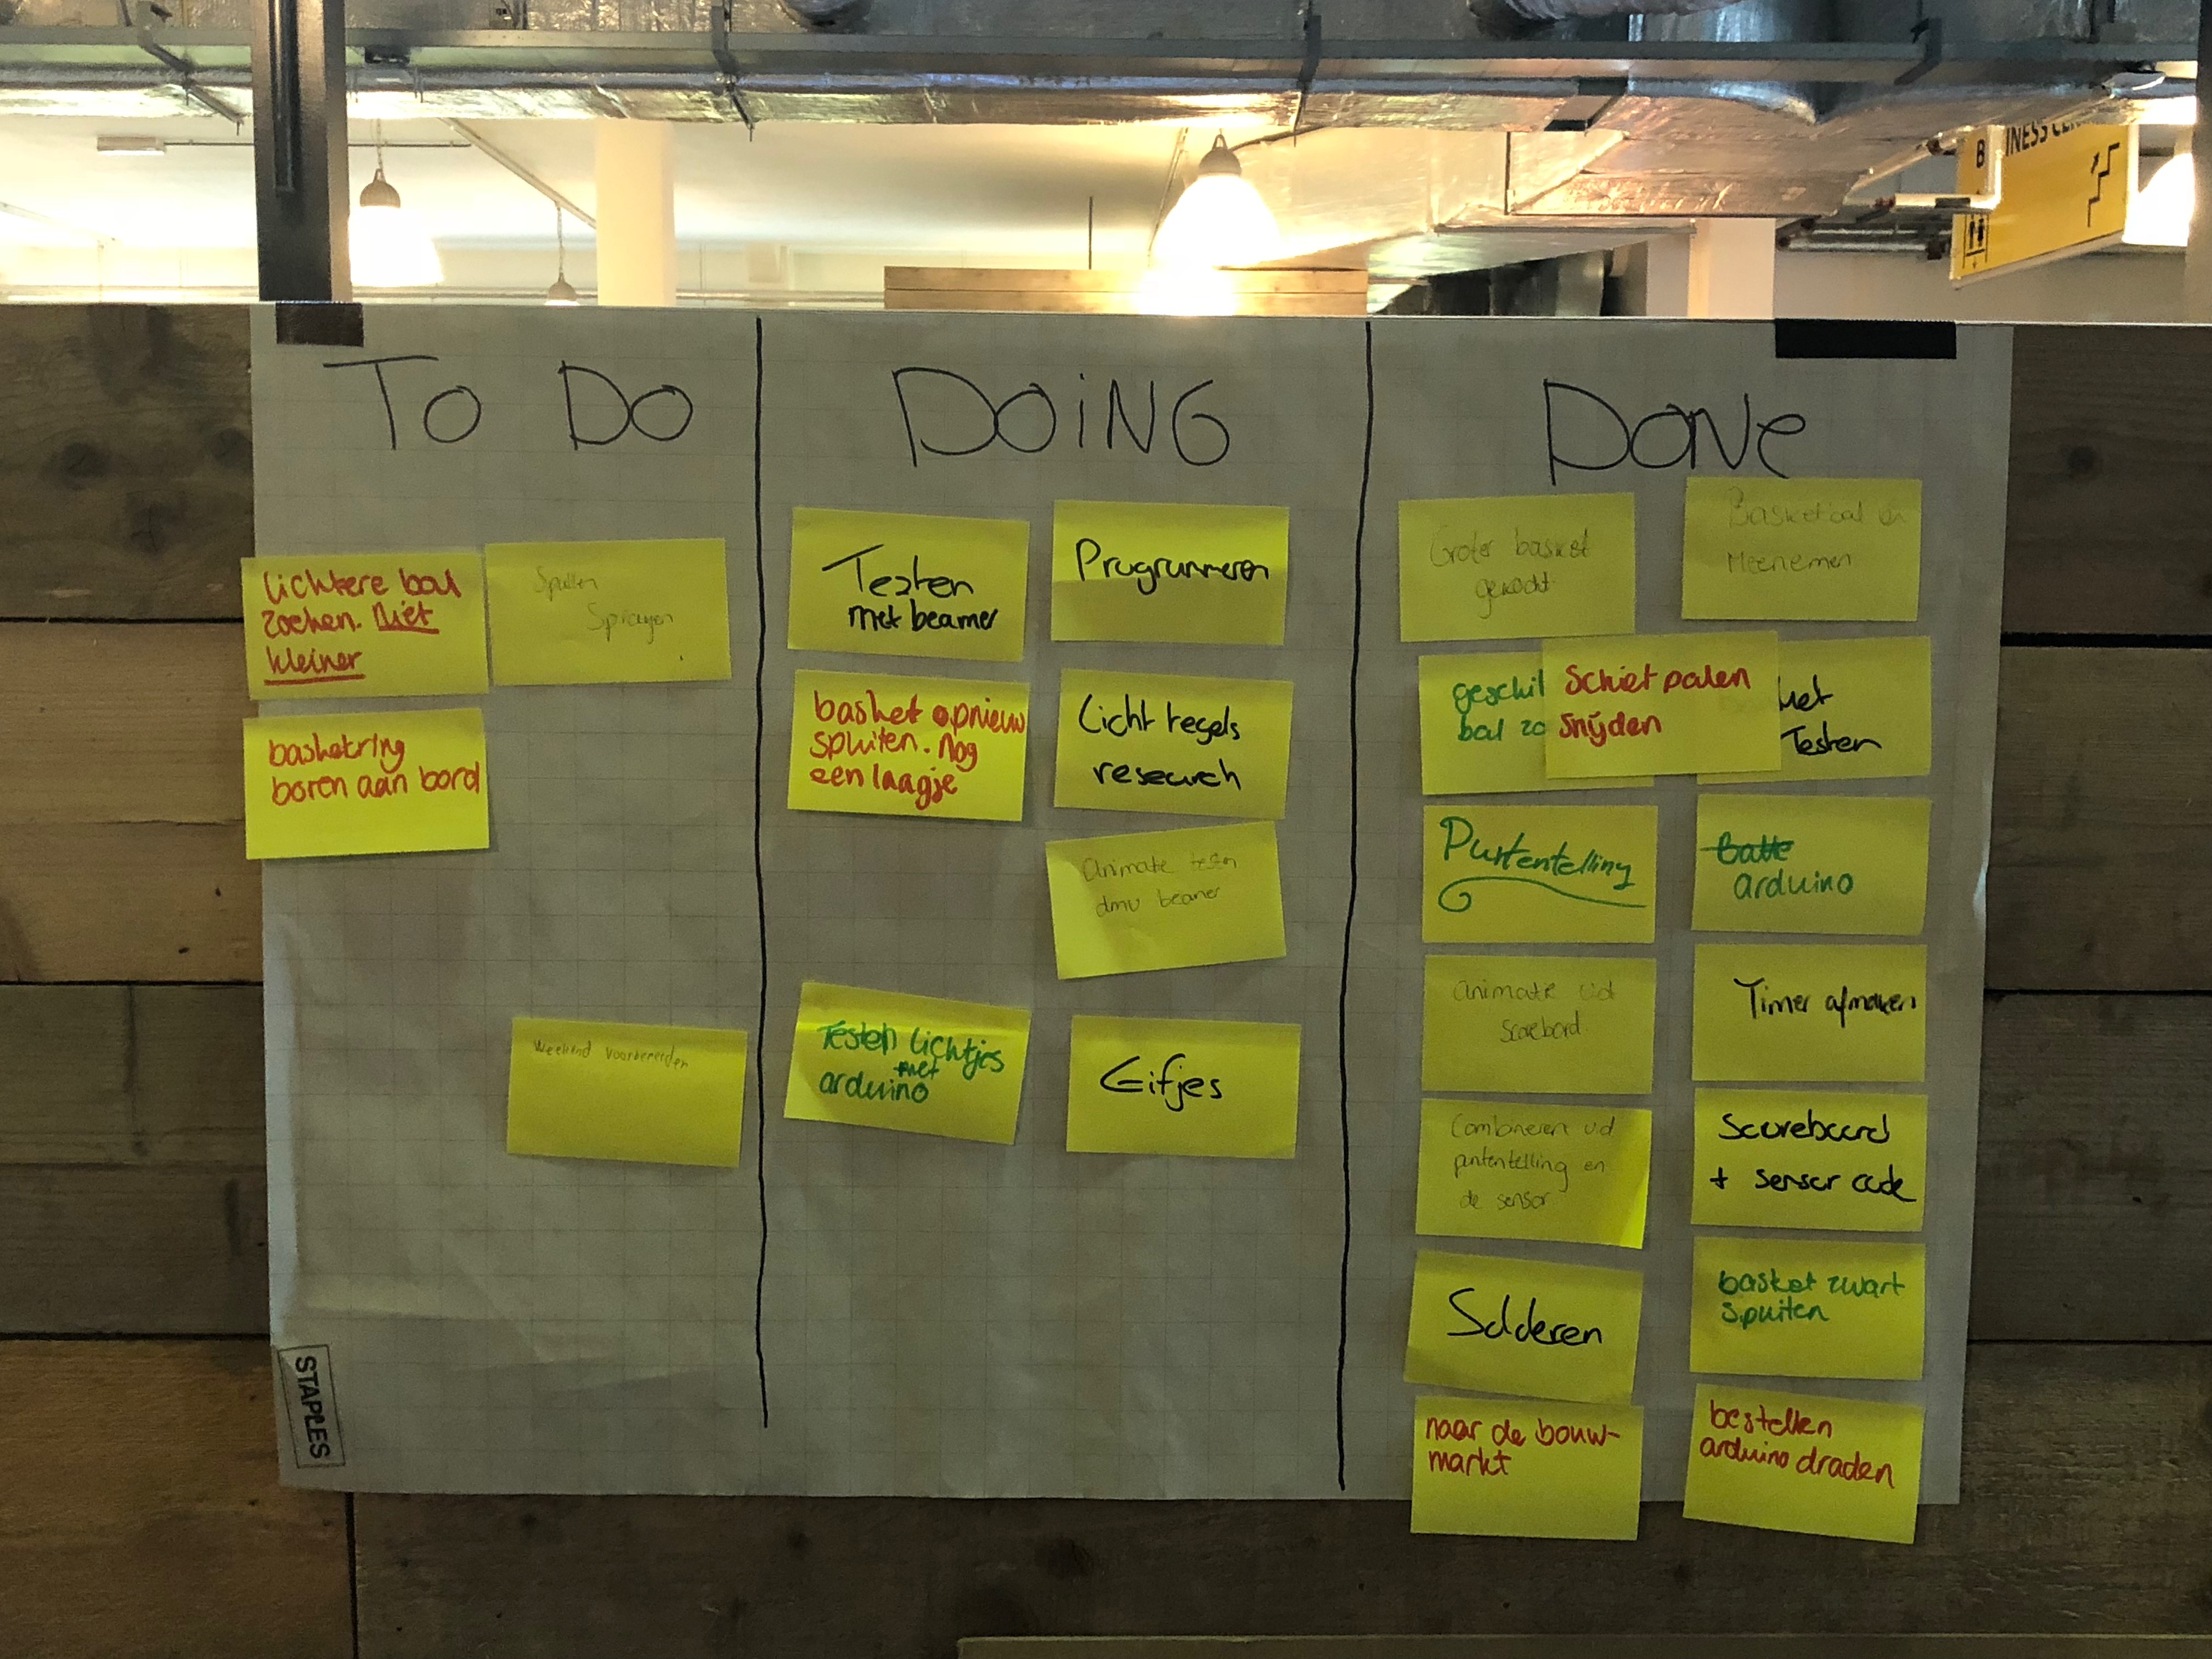 B
INESS CE
TO DO
DOiNG
DONe
Lichtere bal
zoeken. Niet
kleiner
Spullen
Sprayen
basketring
boren aan bord
Weekend voorbereiden
Testen
met beamer
Programmeren
basket opnieuw
spuiten. Nog
een laagje
Licht regels
research
Animatie testen
dmv beamer
Testen lichtjes
met
arduino
Gifjes
Groter basket
gekocht
Basketbal
Meenemen
geschi
bal zo
Schiet palen
snijden
Met
Testen
Puntentelling
arduino
Animatie vd
Scorebord
Timer afmaken
Combineren vd
puntentelling en
de sensor
Scoreboard
+ sensor code
Solderen
basket zwart
spuiten
naar de bouw-
markt
bestellen
arduino draden
STAPLES